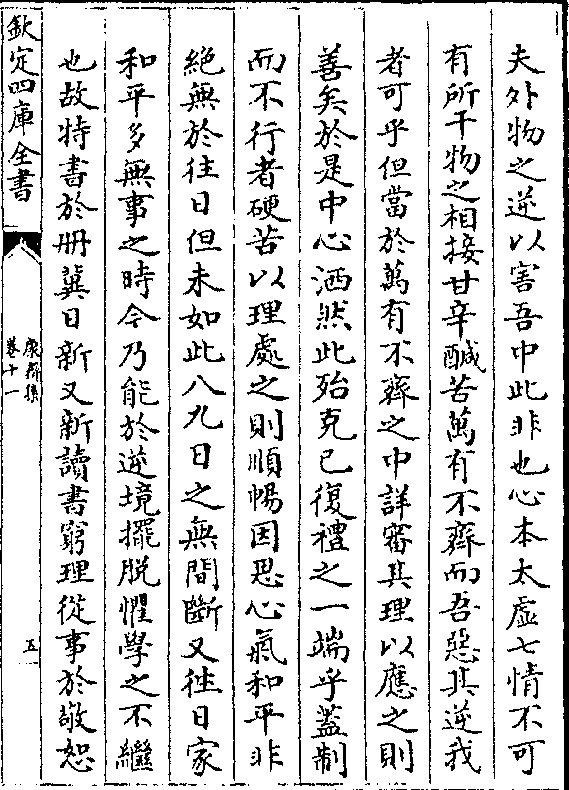 夫外物之逆以害吾中此非也心本太虛七情不可
有所干物之相接甘辛醎苦萬有不齊而吾惡其逆我
者可乎但當於萬有不齊之中詳審其理以應之則
善矣於是中心洒然此殆克己復禮之一端乎蓋制
而不行者硬苦以理處之則順暢因思心氣和平非
絶無於往日但未如此八九日之無間斷又徃日家
和平多無事之時今乃能於逆境擺脱懼學之不繼
也故特書於册冀日新又新讀書窮理從事於敬恕
欽定四庫全書
康齋集
卷十一
五